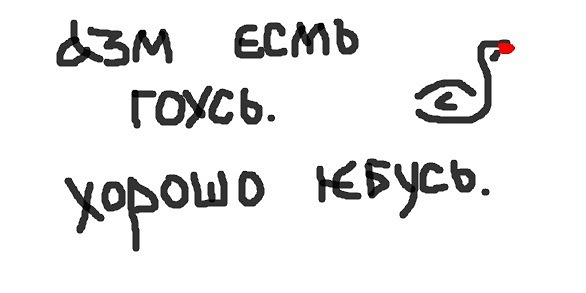 азм есть
гоусь.
хорошо ѥбусь.